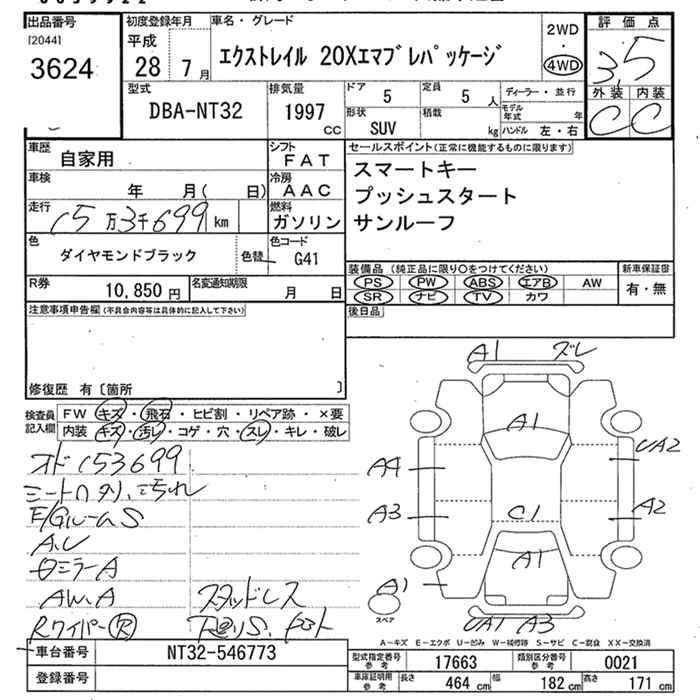 出品番号
[2044]
3624
初度登録年月
平成
28 年 7 月
車名・グレード
エクストレイル 20Xエマブレパッケージ
2WD
・
4WD
評価点
3.5
外装 内装
C C
型式
DBA-NT32
排気量
1997 cc
ドア
5
定員
5 人
形状
SUV
積載
kg
ディーラー・並行
モデル年式 年
ハンドル 左・右
車歴 自家用
シフト FAT
車検 年 月( 日)
冷房 AAC
走行 15万3千699 km
燃料 ガソリン
色 ダイヤモンドブラック
色替
色コード G41
R券 10,850 円
名変通知期限 月 日
セールスポイント(正常に機能するものに限ります)
スマートキー
プッシュスタート
サンルーフ
装備品 (純正品に限り○をつけてください)
PS PW ABS エアB AW
SR ナビ TV カワ
新車保証書
有・無
後日品
注意事項申告欄(不具合内容等は具体的に記入して下さい)
修復歴 有〔箇所 〕
検査員記入欄
FW キズ・飛石・ヒビ割・リペア跡・×要
内装 キズ・汚レ・コゲ・穴・スレ・キレ・破レ
オド153699
E/GルームS
AW.A
スタッドレス
Rワイパー Ⓡ
A1 ズレ
A1
UA2
A4
A3
A2
C1
A1
A1
UA1 A3
スペア
A-キズ E-エクボ U-凹み W-補修跡 S-サビ C-腐食 XX-交換済
車台番号 NT32-546773
登録番号
型式指定番号 参考 17663
類別区分番号 参考 0021
車庫証明用 参考 長さ 464 cm 幅 182 cm 高さ 171 cm